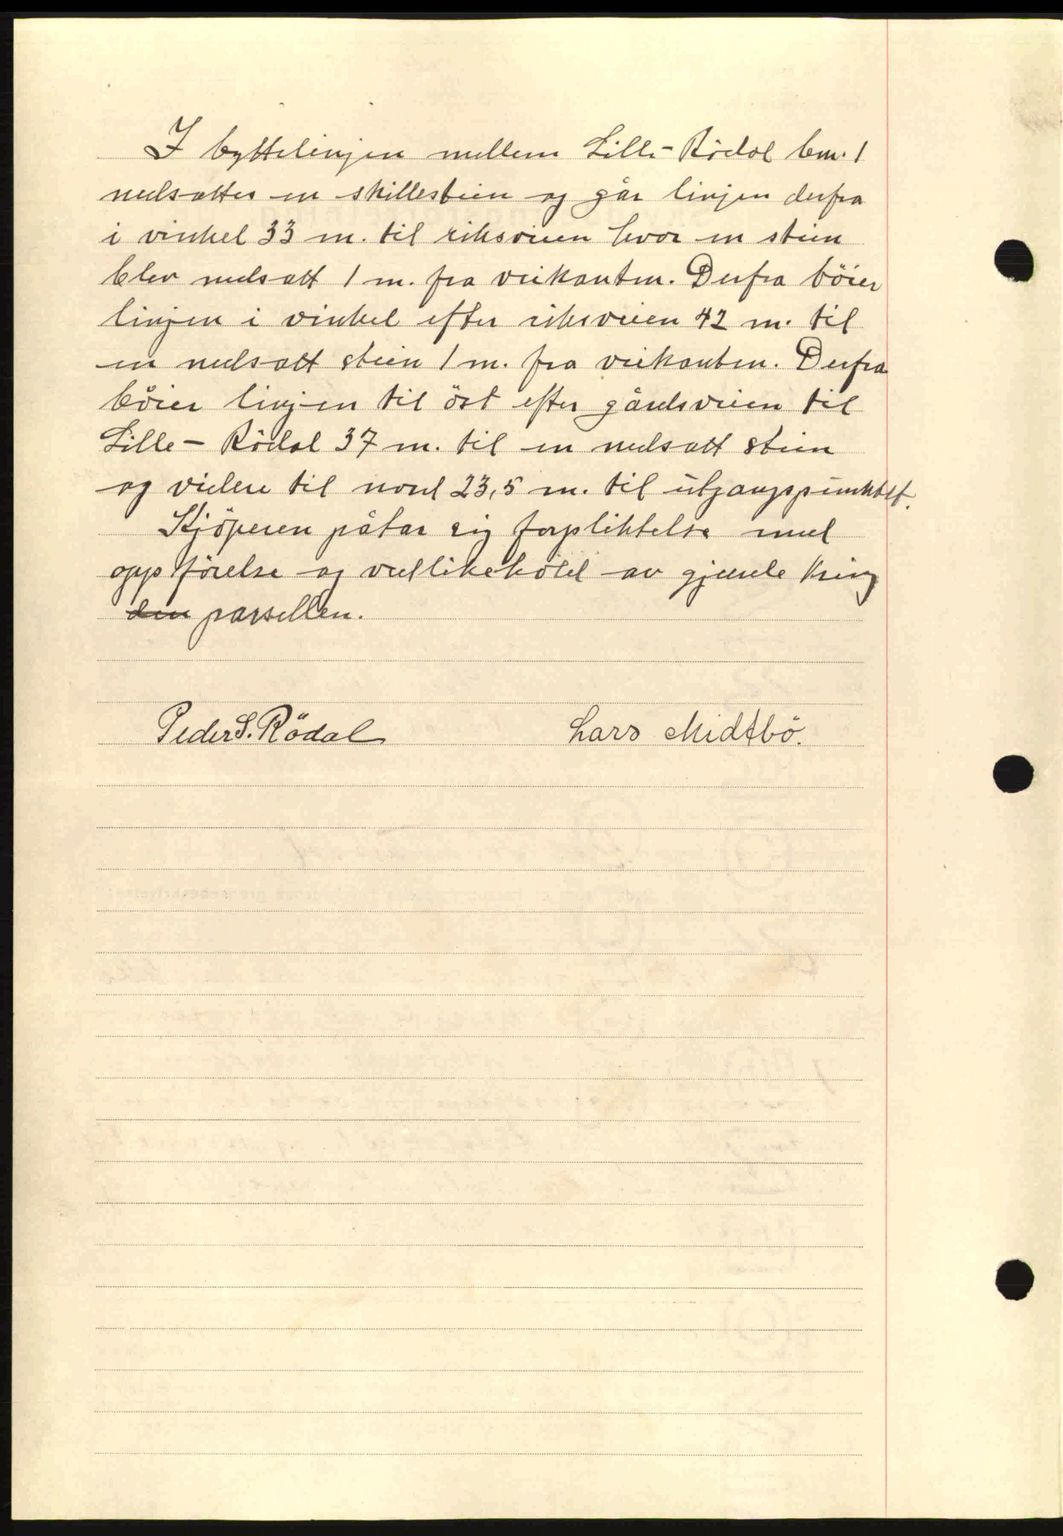 I byttelinjen mellem Lille-Rödal bm. 1
nedsattes en skillestein og går linjen derfra
i vinkel 33 m. til riksveien hvor en stein
blev nedsatt 1 m. fra veikanten. Derfra böier
linjen i vinkel efter riksveien 42 m. til
en nedsatt stein 1 m. fra veikanten. Derfra
böier linjen til öst efter gårdsveien til
Lille-Rödal 37 m. til en nedsatt stein
og videre til nord 23,5 m. til utgangspunktet.
Kjöperen påtar sig forpliktelse med
oppförelse og vedlikehold av gjerde kring
den parsellen.
Peder S. Rödal Lars Midtbö.